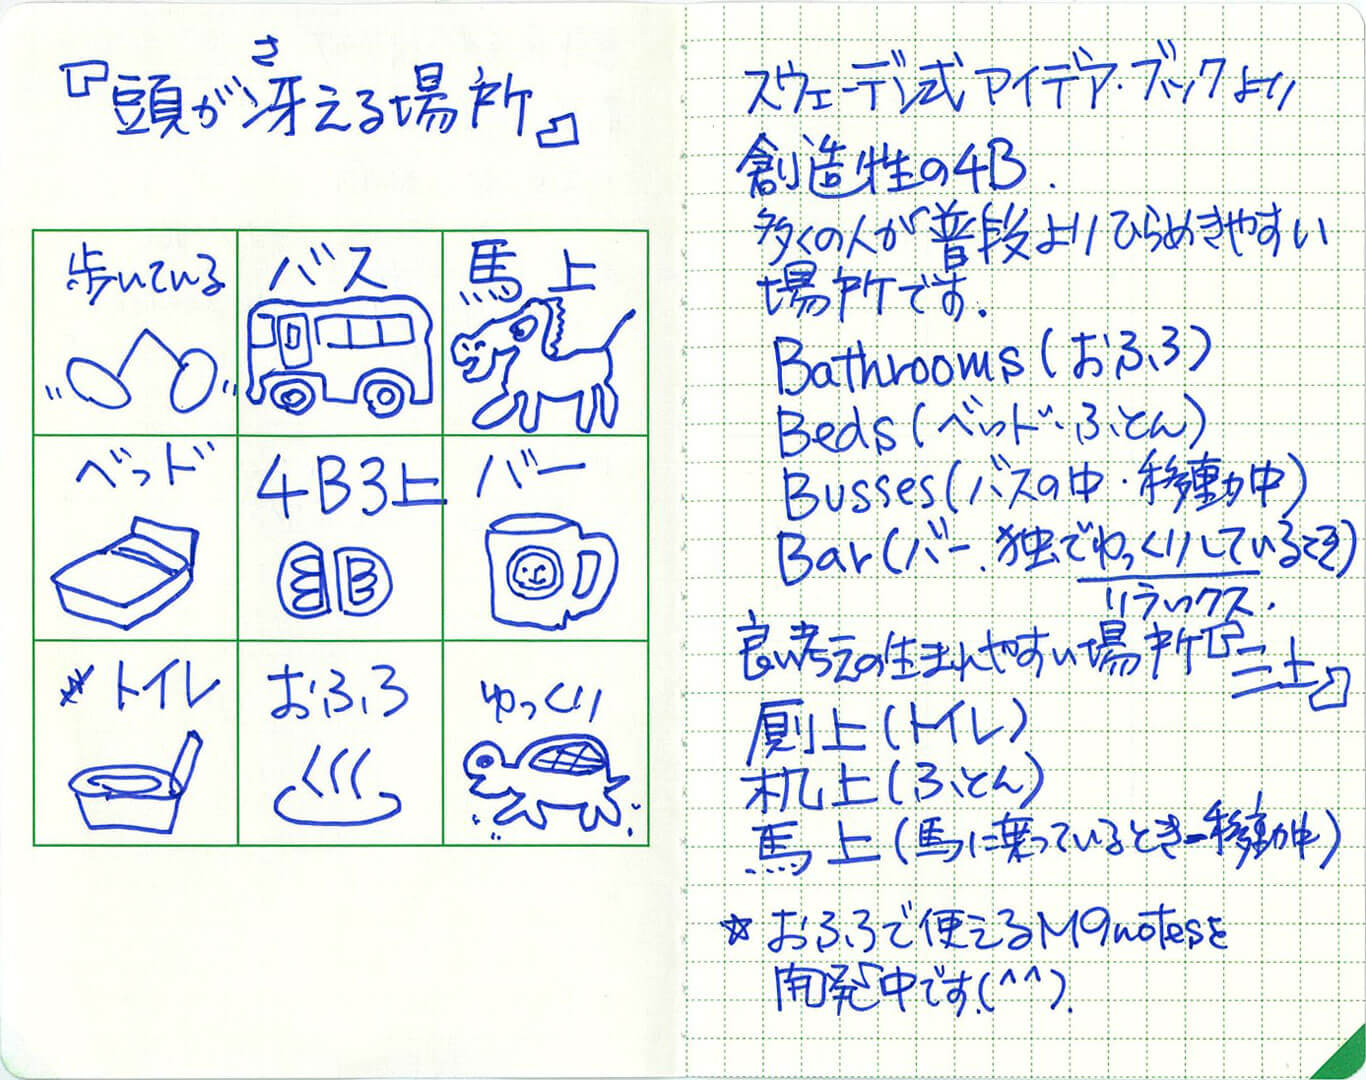 『頭が冴える場所』
さ
歩いている
バス
馬上
ベッド
4B3上
バー
トイレ
おふろ
ゆっくり
スウェーデン式アイデア・ブックより
創造性の4B.
多くの人が普段よりひらめきやすい
場所です.
Bathrooms(おふろ)
Beds(ベッド・ふとん)
Busses(バスの中・移動中)
Bar(バー.独でゆっくりしているとき)
リラックス.
良い考えの生まれやすい場所『三上』
厠上(トイレ)
机上(ふとん)
馬上(馬に乗っているとき-移動中)
☆おふろで使えるM9notesを
開発中です.(^^).